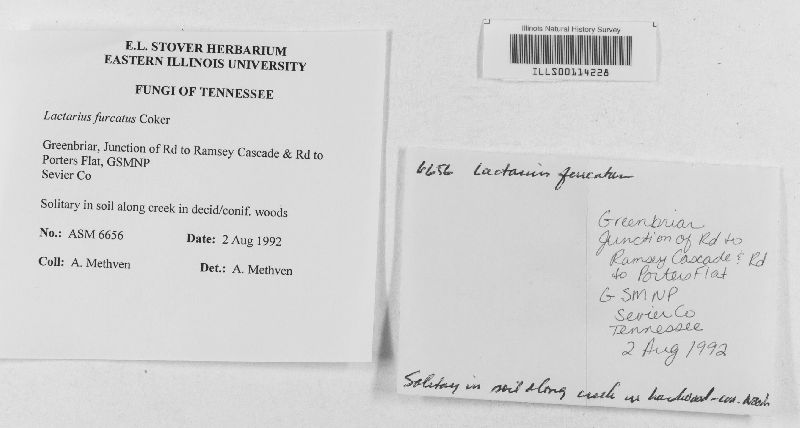 E.L. STOVER HERBARIUM
EASTERN ILLINOIS UNIVERSITY
FUNGI OF TENNESSEE
Lactarius furcatus Coker
Greenbriar, Junction of Rd to Ramsey Cascade & Rd to
Porters Flat, GSMNP
Sevier Co
Solitary in soil along creek in decid/conif. woods
No.: ASM 6656 Date: 2 Aug 1992
Coll: A. Methven Det.: A. Methven
Illinois Natural History Survey
ILLS00114228
6656 Lactarius furcatus
Greenbriar
Junction of Rd to
Ramsey Cascade & Rd
to Porters Flat
GSMNP
Sevier Co
Tennessee
2 Aug 1992
Solitary in soil along creek in hardwood-con. woods